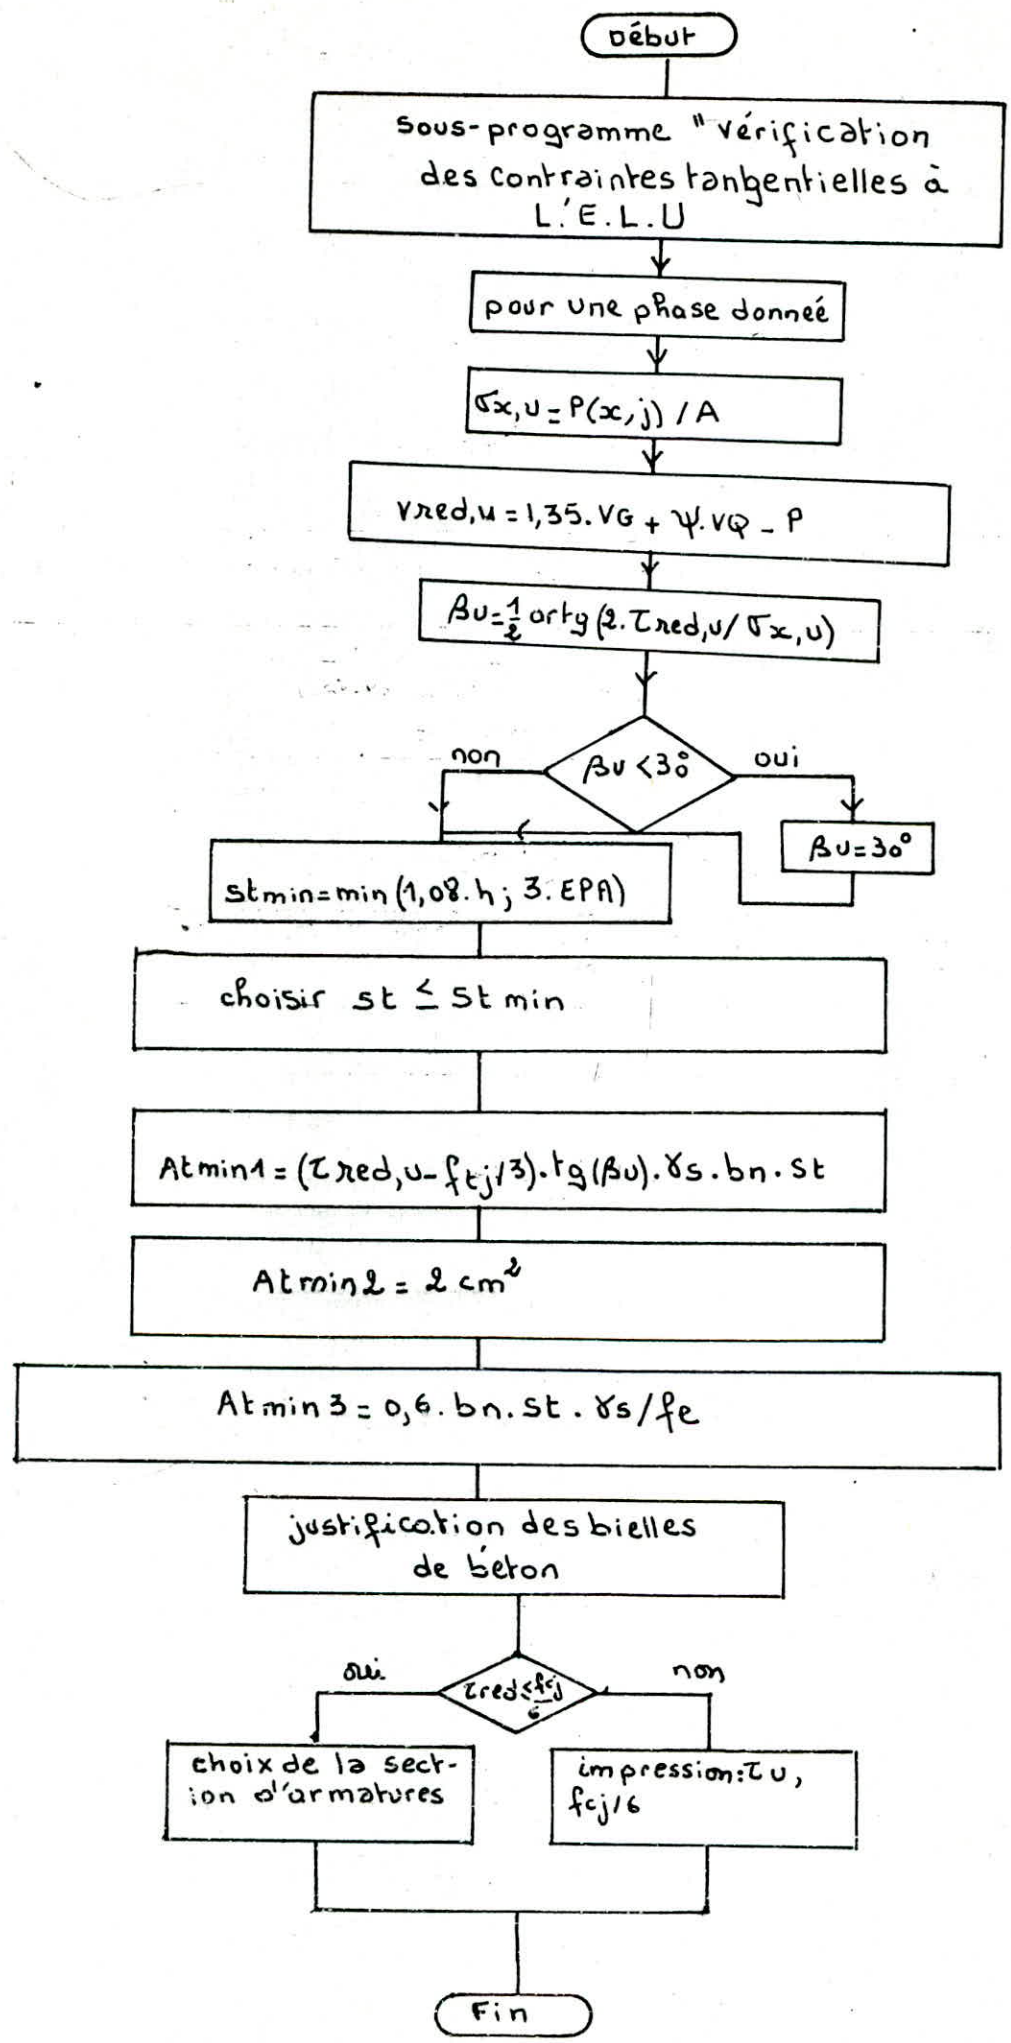 Début
sous-programme "vérification
des contraintes tangentielles à
L'E.L.U
pour une phase donneé
σx,u = P(x,j) / A
Vred,u = 1,35.VG + ψ.VQ - P
βu = 1/2 artg (2.τred,u / σx,u)
non
βu < 30°
oui
βu = 30°
stmin = min (1,08.h ; 3.EPA)
choisir st ≤ st min
Atmin1 = (τred,u - ftj/3).tg(βu).γs.bn.st
Atmin2 = 2 cm²
Atmin3 = 0,6.bn.st.γs/fe
justification des bielles
de béton
oui
τred ≤ fcj/6
non
choix de la sect-
ion d'armatures
impression: τu,
fcj/6
Fin